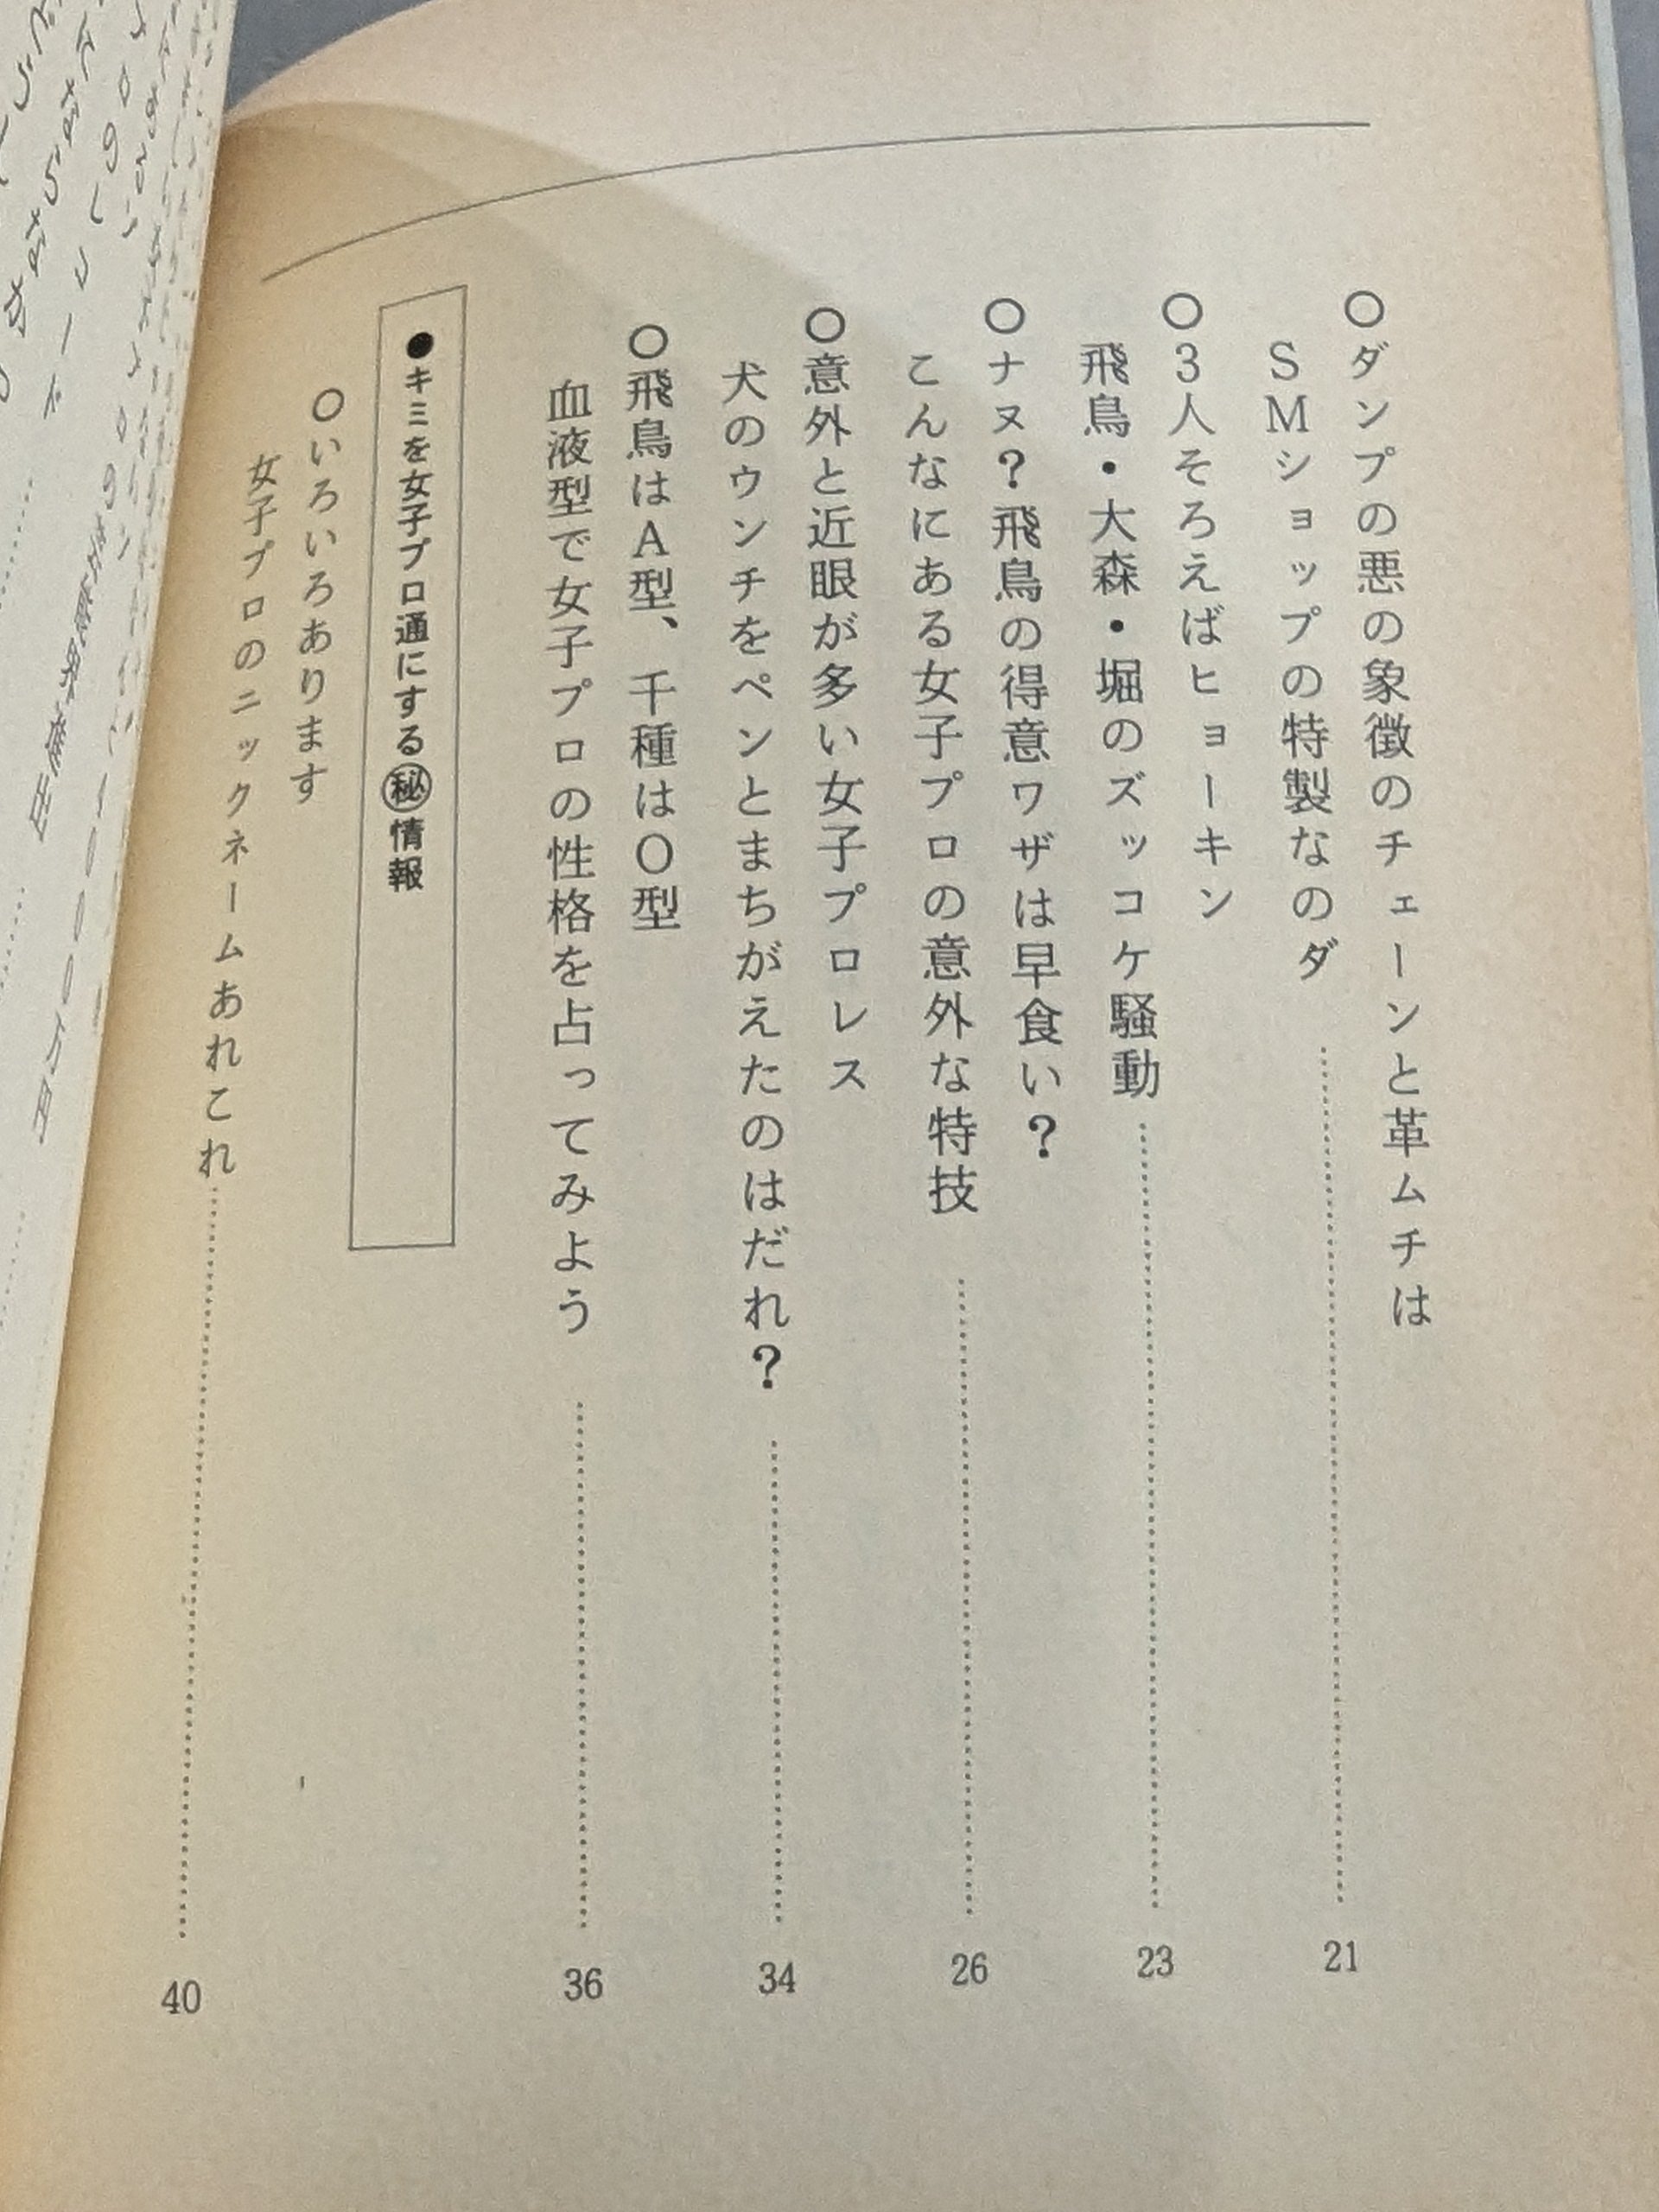 ○ダンプの悪の象徴のチェーンと革ムチは
SMショップの特製なのダ……21
○3人そろえばヒョーキン
飛鳥・大森・堀のズッコケ騒動……23
○ナヌ？飛鳥の得意ワザは早食い？
こんなにある女子プロの意外な特技……26
○意外と近眼が多い女子プロレス
犬のウンチをペンとまちがえたのはだれ？……34
○飛鳥はA型、千種はO型
血液型で女子プロの性格を占ってみよう……36
●キミを女子プロ通にする㊙情報
○いろいろあります
女子プロのニックネームあれこれ……40